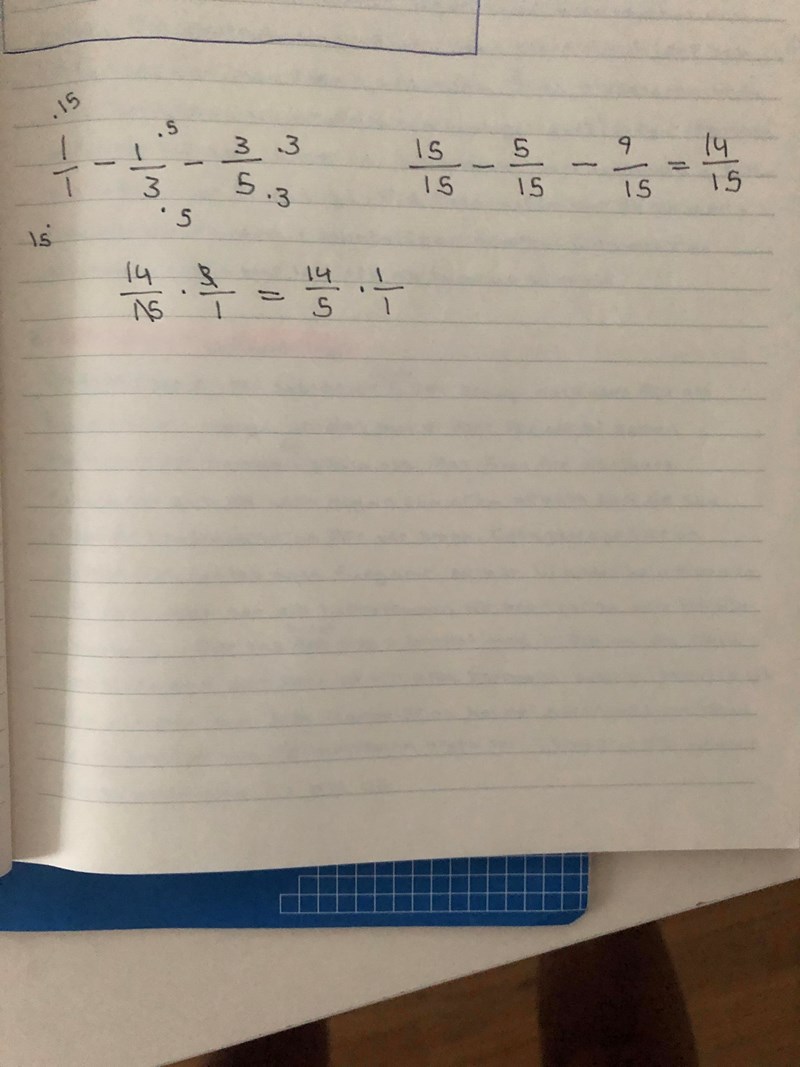 .15
1/1 - 1/3 .5 .5 - 3/5 .3 .3    15/15 - 5/15 - 9/15 = 14/15
15.
14/15 . 3/1 = 14/5 . 1/1